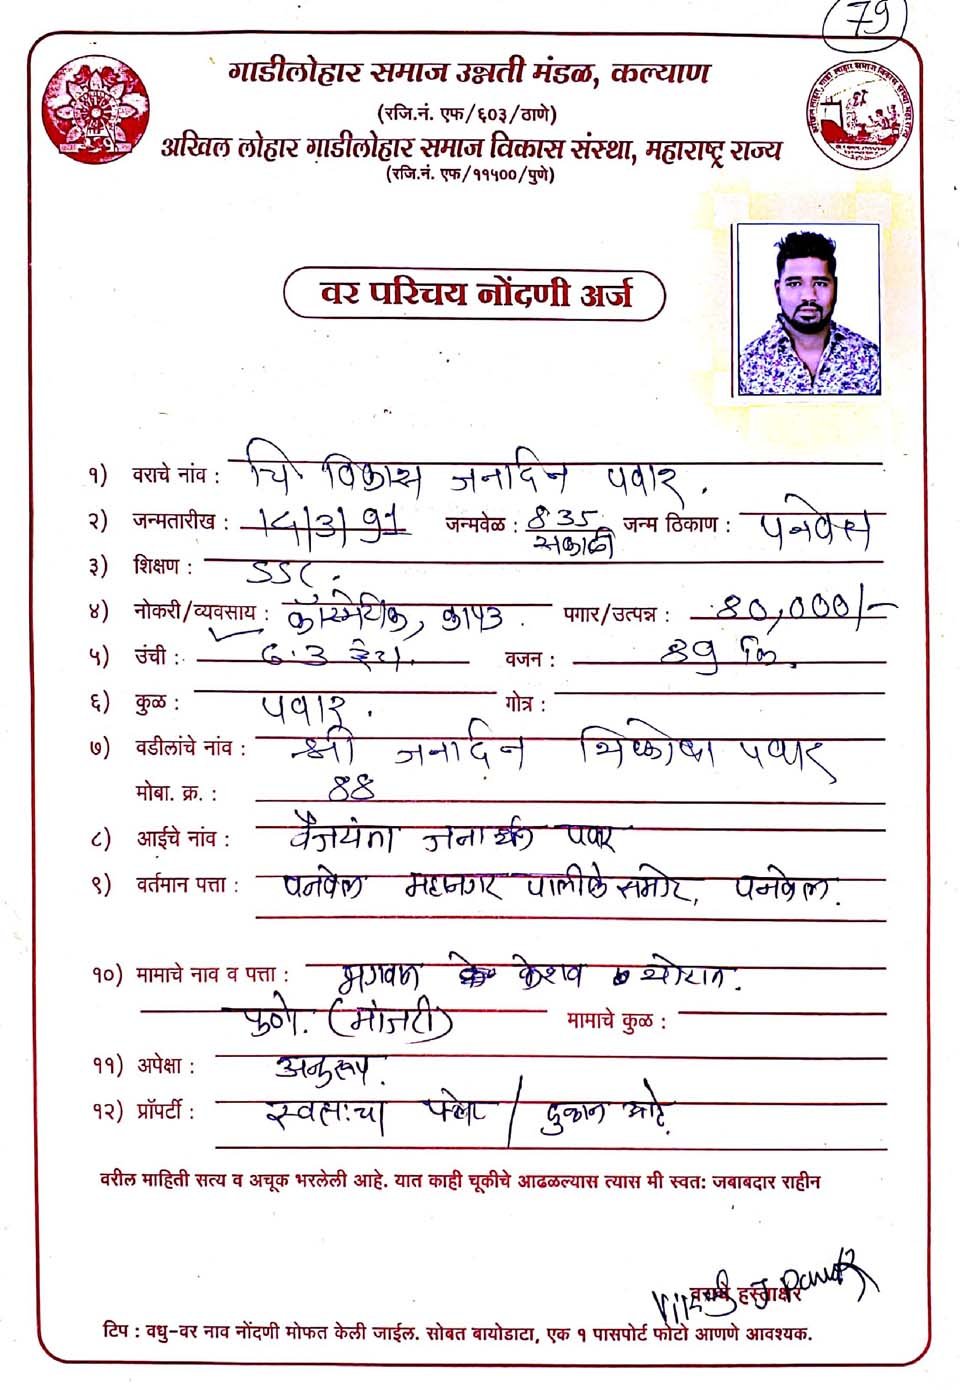 79
गाडीलोहार समाज उन्नती मंडळ, कल्याण
(रजि.नं. एफ/६०३/ठाणे)
अखिल लोहार गाडीलोहार समाज विकास संस्था, महाराष्ट्र राज्य
(रजि.नं. एफ/११५००/पुणे)
वर परिचय नोंदणी अर्ज
१) वराचे नांव : चि विकास जनार्दन पवार.
२) जन्मतारीख : जन्मवेळ : 8 35 सकाळी जन्म ठिकाण : पनवेल
३) शिक्षण : SSC.
४) नोकरी/व्यवसाय : कॉस्मेटीक, कापड. पगार/उत्पन्न : 80,000/-
५) उंची : वजन :
६) कुळ : पवार. गोत्र :
७) वडीलांचे नांव : श्री जनार्दन पवार
मोबा. क्र. :
८) आईचे नांव : वैजयंता जनार्धन पवार
९) वर्तमान पत्ता : पनवेल महानगर पालीके समोर, पनवेल.
१०) मामाचे नाव व पत्ता : भगवान केशव
पुणे. (मांजरी) मामाचे कुळ :
११) अपेक्षा : अनुरूप.
१२) प्रॉपर्टी : स्वतःचा फ्लॅट / दुकान आहे.
वरील माहिती सत्य व अचूक भरलेली आहे. यात काही चूकीचे आढळल्यास त्यास मी स्वतः जबाबदार राहीन
वराचे हस्ताक्षर
टिप : वधु-वर नाव नोंदणी मोफत केली जाईल. सोबत बायोडाटा, एक १ पासपोर्ट फोटो आणणे आवश्यक.